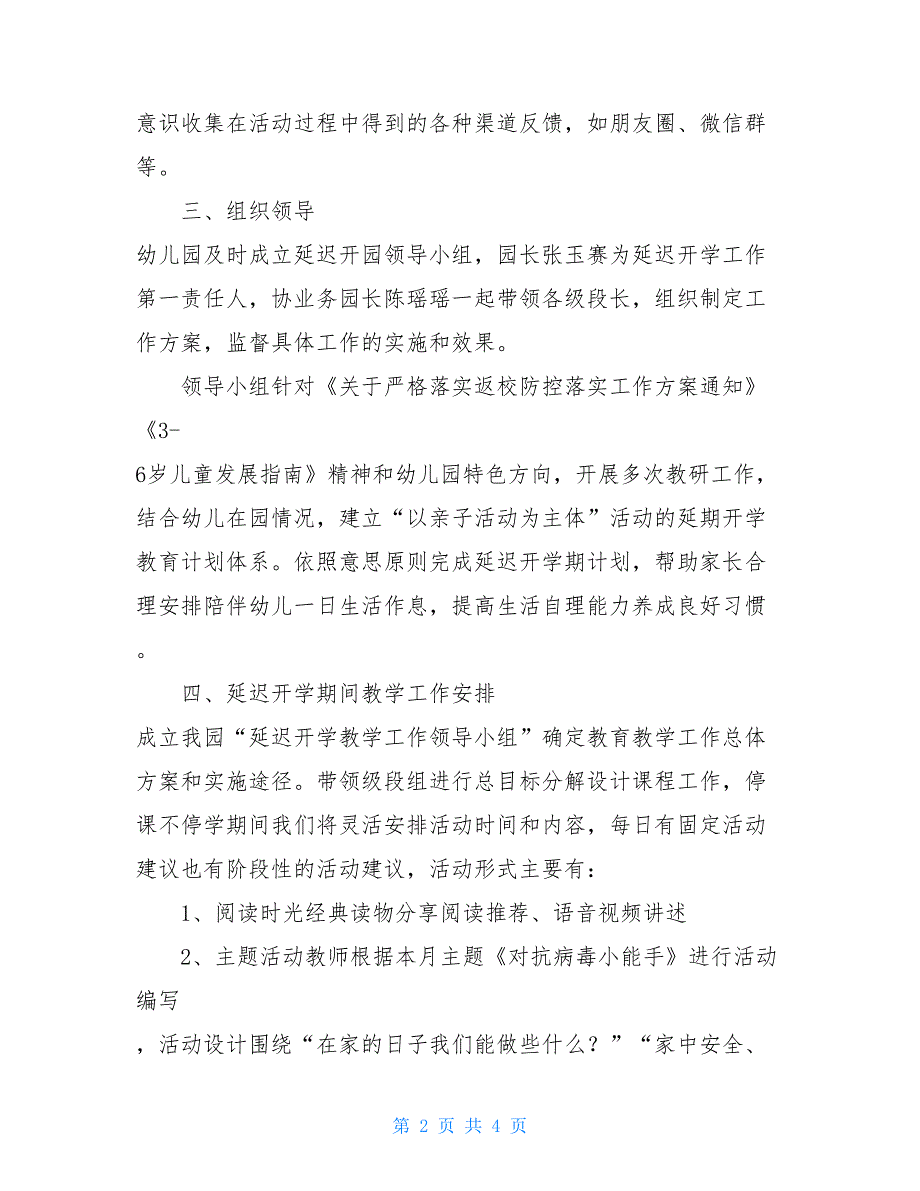 意识收集在活动过程中得到的各种渠道反馈，如朋友圈、微信群
等。
三、组织领导
幼儿园及时成立延迟开园领导小组，园长张玉赛为延迟开学工作
第一责任人，协业务园长陈瑶瑶一起带领各级段长，组织制定工
作方案，监督具体工作的实施和效果。
领导小组针对《关于严格落实返校防控落实工作方案通知》
《3-
6岁儿童发展指南》精神和幼儿园特色方向，开展多次教研工作，
结合幼儿在园情况，建立“以亲子活动为主体”活动的延期开学
教育计划体系。依照意思原则完成延迟开学期计划，帮助家长合
理安排陪伴幼儿一日生活作息，提高生活自理能力养成良好习惯
。
四、延迟开学期间教学工作安排
成立我园“延迟开学教学工作领导小组”确定教育教学工作总体
方案和实施途径。带领级段组进行总目标分解设计课程工作，停
课不停学期间我们将灵活安排活动时间和内容，每日有固定活动
建议也有阶段性的活动建议，活动形式主要有：
1、阅读时光经典读物分享阅读推荐、语音视频讲述
2、主题活动教师根据本月主题《对抗病毒小能手》进行活动
编写
，活动设计围绕“在家的日子我们能做些什么？”“家中安全、
第 2 页 共 4 页